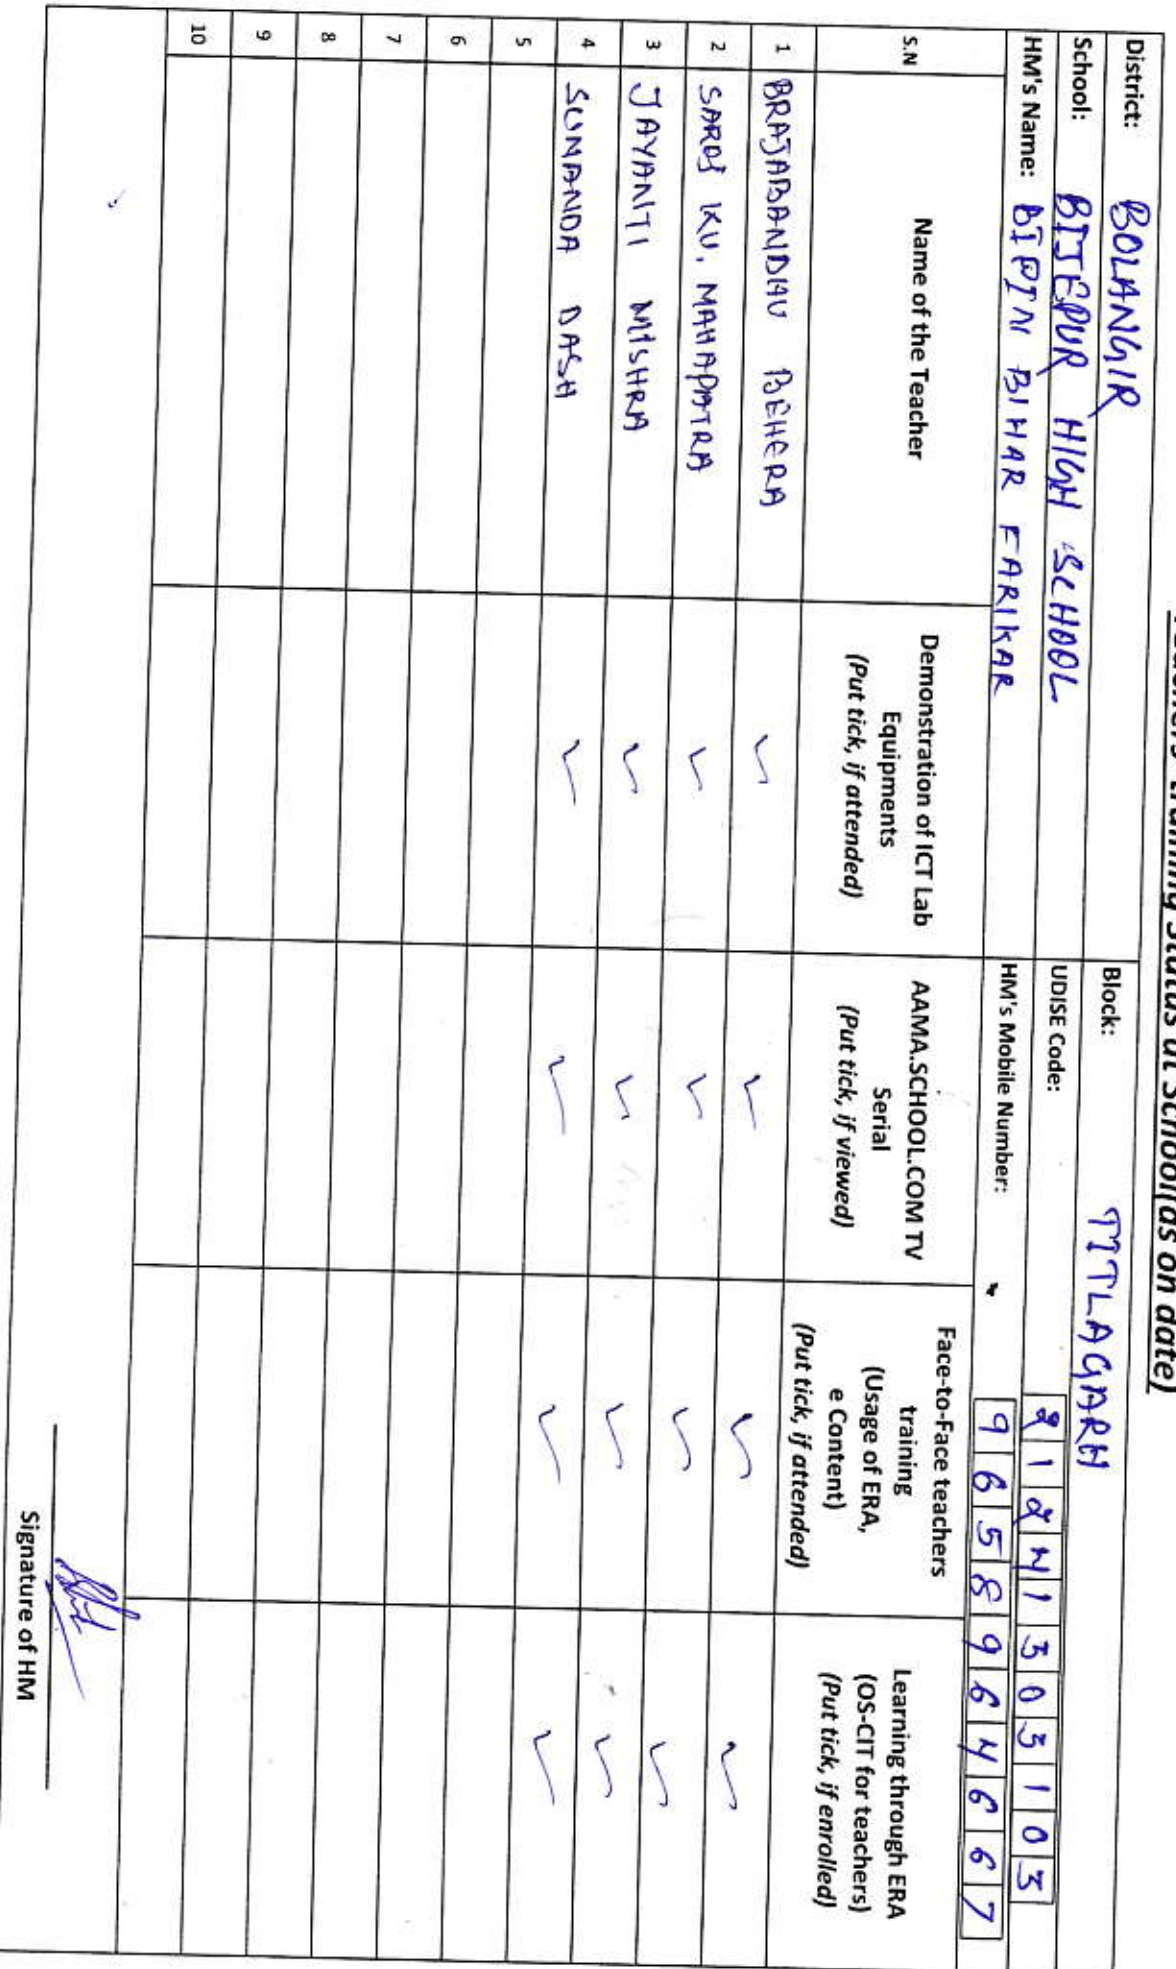 Teachers' training Status at School(as on date)
District: BOLANGIR Block: TITLAGARH
School: BIJEPUR HIGH SCHOOL UDISE Code: 21241303103
HM's Name: BIPIN BIHAR FARIKAR HM's Mobile Number: 9658964667
S.N Name of the Teacher Demonstration of ICT Lab Equipments (Put tick, if attended) AAMA.SCHOOL.COM TV Serial (Put tick, if viewed) Face-to-Face teachers training (Usage of ERA, e Content) (Put tick, if attended) Learning through ERA (OS-CIT for teachers) (Put tick, if enrolled)
1 BRAJABANDHU BEHERA ✓ ✓ ✓ ✓
2 SAROJ KU. MAHAPATRA ✓ ✓ ✓ ✓
3 JAYANTI MISHRA ✓ ✓ ✓ ✓
4 SUNANDA DASH ✓ ✓ ✓ ✓
5
6
7
8
9
10
Signature of HM